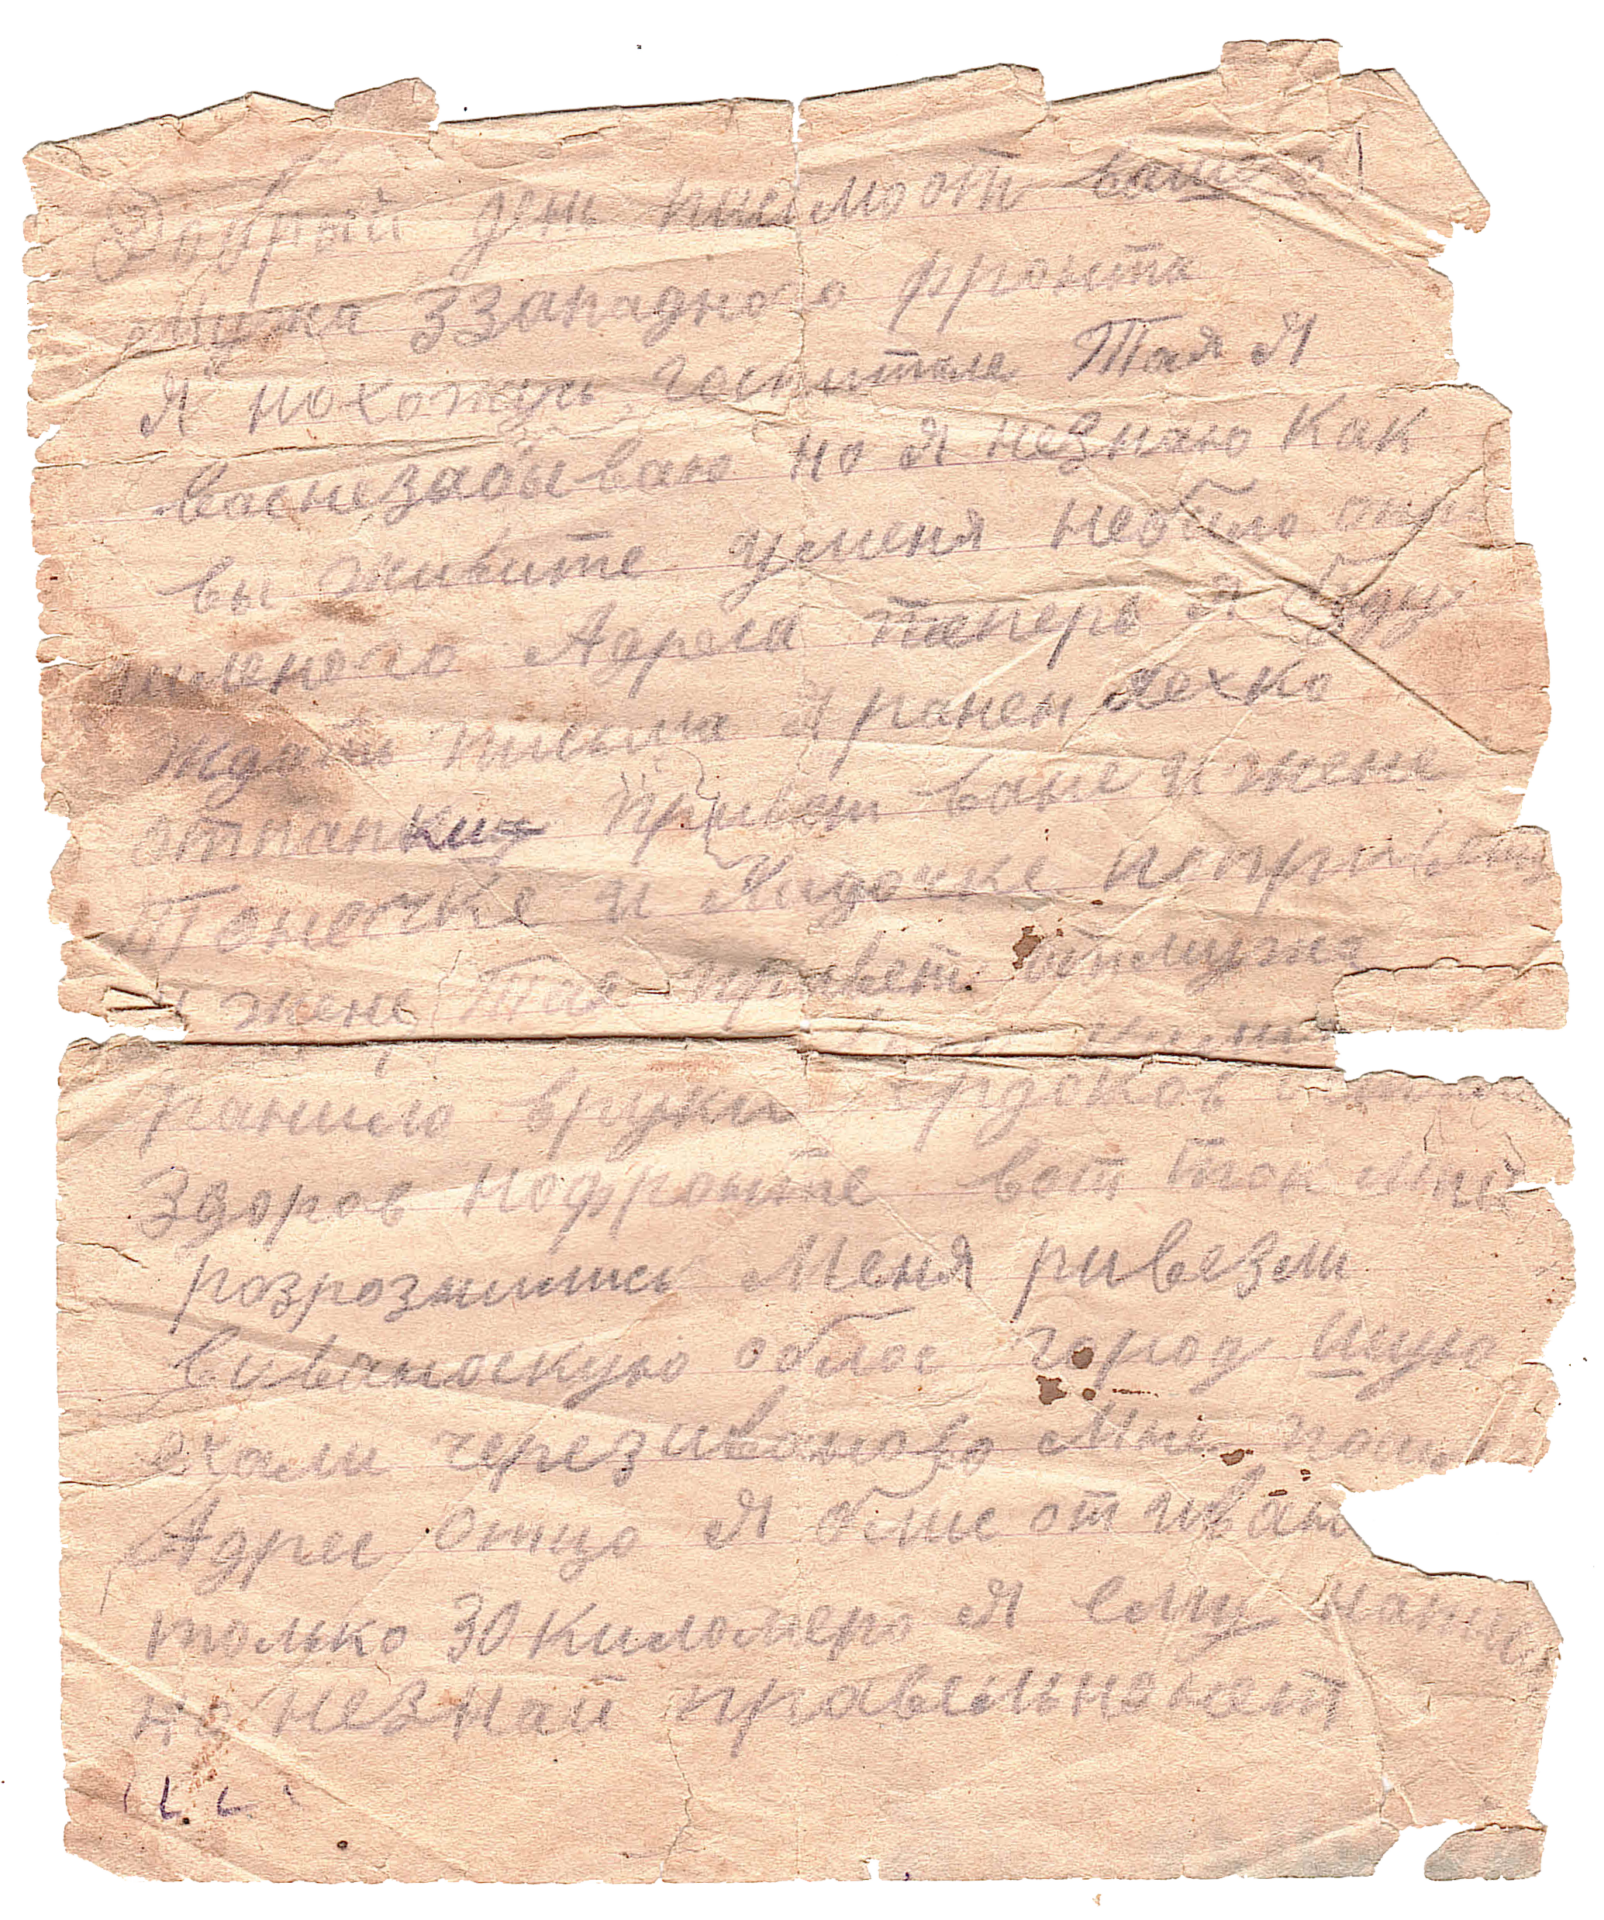 Добрый день писмо от вашего
мужа ззападного фронта
Я нохожусь госпитале Тая Я
васнезабываю но Я незнаю как
вы живите уменя небыло
Адреса таперь я буду
ждать письма Я ранен лехко
отпапки привет ване и жене
Тоночке и Лидочке
жене Тая привет отмужа
ранило вруки
здоров нофронте вот так мы
розрознились Меня ривезли
виваноскую облос город Шую
ехали черезиваново Мне
Адрес отцо Я
только 30 киломеро Я ему
но незнай правельно нет